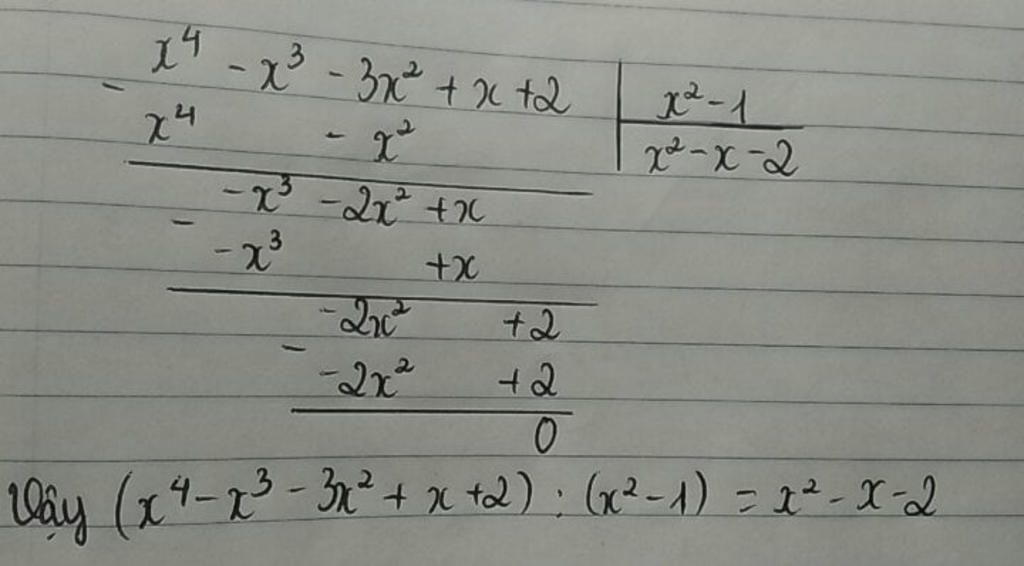 x⁴ - x³ - 3x² + x + 2 | x² - 1
- x⁴ - x² | x² - x - 2
-x³ - 2x² + x
- -x³ + x
-2x² + 2
- -2x² + 2
0
Vậy (x⁴ - x³ - 3x² + x + 2) : (x² - 1) = x² - x - 2